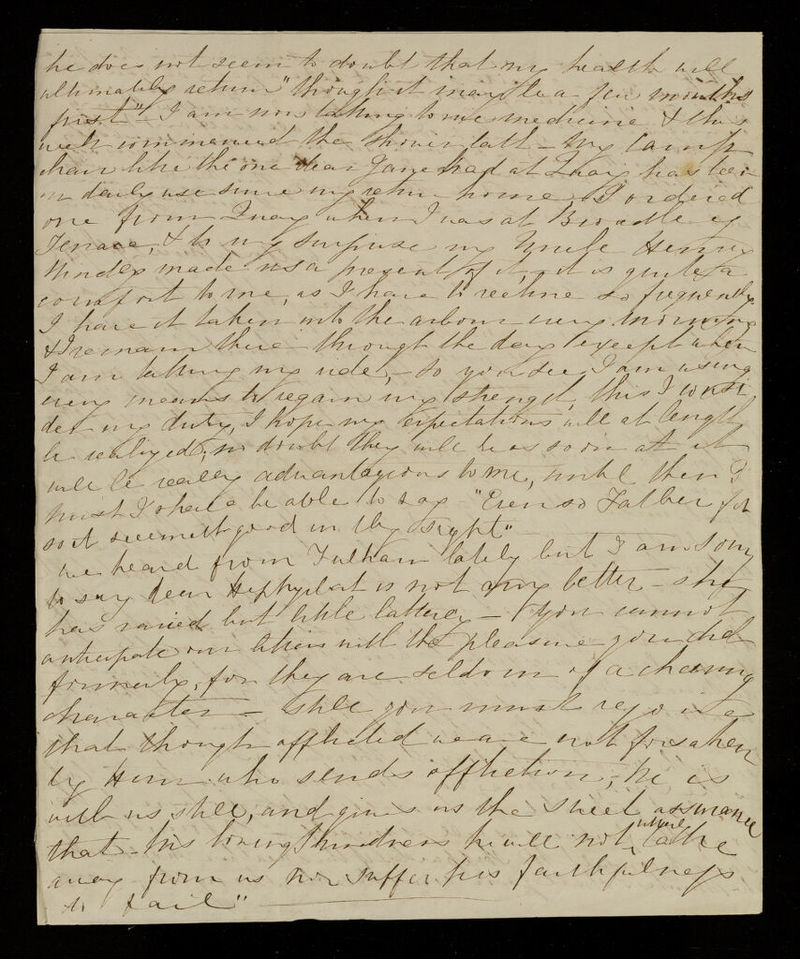 he does not seem to doubt that my health will
ultimately return "though it may be a few months
first". I am now taking some medicine & this
week commenced the shower bath – My Camp
chair like the one dear Jane had at Quay has been
in daily use since my return home. I ordered
one from Quay when I was at
Terrace, & to my surprise my Uncle Henry
made us a present of it, it is quite a
comfort to me, as I have to recline so frequently
I have it taken into the arbour every morning
& I remain there through the day except when
I am taking my ride, – so you see I am using
every means to regain my strength, this I consi
der my duty, I hope my expectations will at length
be realized, no doubt they will be as soon as it
will be really advantageous to me, until then I
trust I shall be able to say "Even so Father for
so it seemeth good in thy sight"
We heard from Fulham lately but I am sorry
to say dear Hephzibah is not any better – she
has varied but little latterly – You cannot
anticipate our letters with the pleasure you did
formerly, for they are seldom of a cheering
character – still you must rejoice
that though afflicted we are not forsaken
by Him who sends affliction, He is
with us still, and gives us the sweet assurance
that "his loving kindness he will not utterly take
away from us nor suffer his faithfulness
to fail"